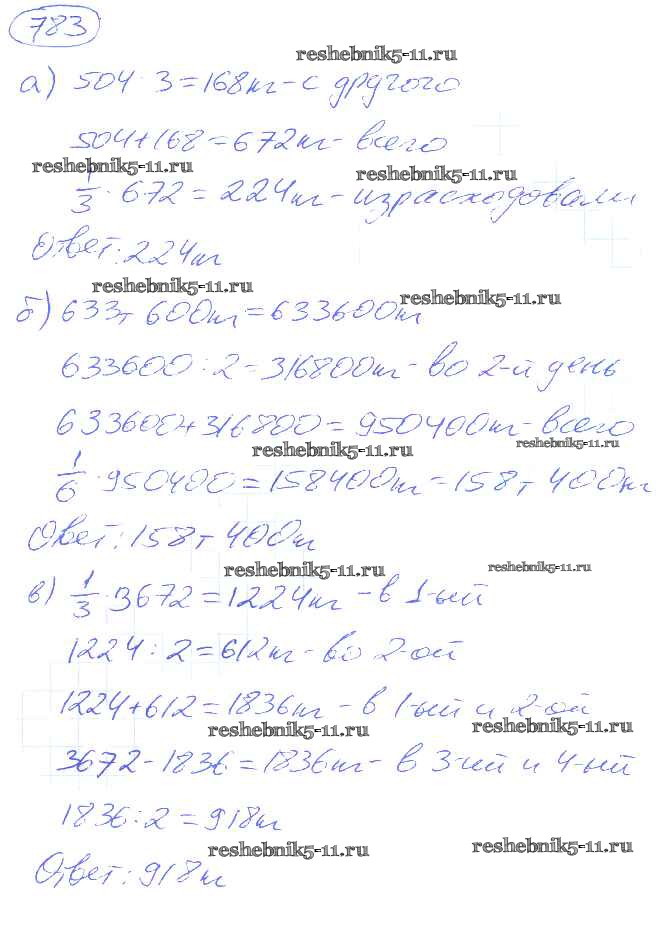 783
reshebnik5-11.ru
а) 504 : 3 = 168 кг - с другого
504 + 168 = 672 кг - всего
reshebnik5-11.ru reshebnik5-11.ru
1/3 · 672 = 224 кг - израсходовали
Ответ: 224 кг
reshebnik5-11.ru reshebnik5-11.ru
б) 633 т 600 кг = 633600 кг
633600 : 2 = 316800 кг - во 2-й день
633600 + 316800 = 950400 кг - всего
reshebnik5-11.ru reshebnik5-11.ru
1/6 · 950400 = 158400 кг = 158 т 400 кг
Ответ: 158 т 400 кг
reshebnik5-11.ru reshebnik5-11.ru
в) 1/3 · 3672 = 1224 кг - в 1-ый
1224 : 2 = 612 кг - во 2-ой
1224 + 612 = 1836 кг - в 1-ый и 2-ой
reshebnik5-11.ru reshebnik5-11.ru
3672 - 1836 = 1836 кг - в 3-ий и 4-ый
1836 : 2 = 918 кг
reshebnik5-11.ru reshebnik5-11.ru
Ответ: 918 кг